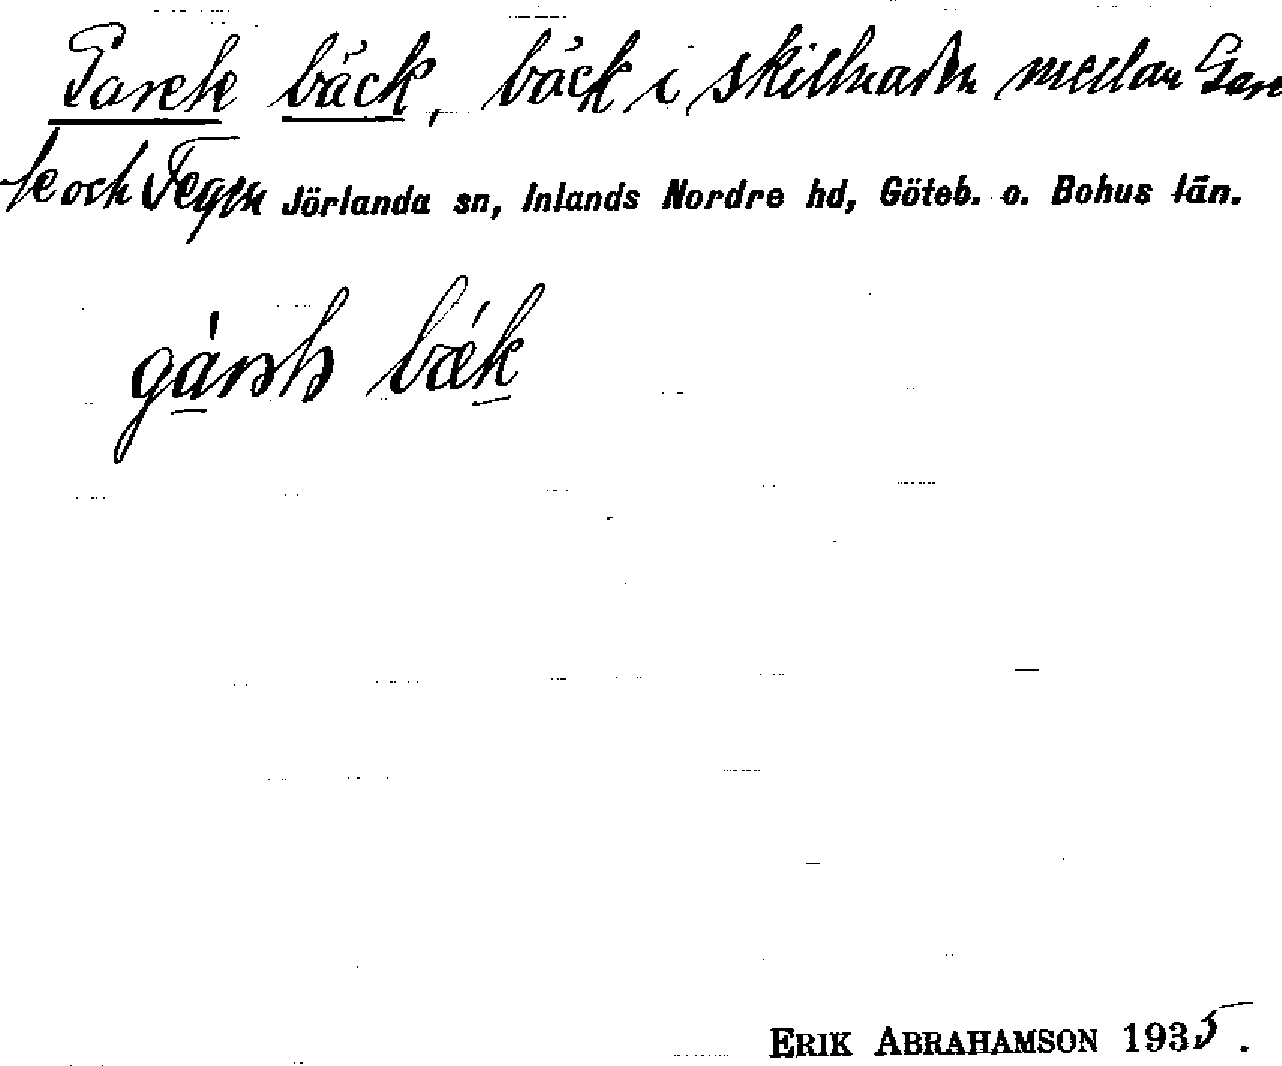 Garck bäck, bäck i skillnaden mellan Gar
ke och Tegen Jörlanda sn, Inlands Nordre hd, Göteb. o. Bohus län.
bæk
ERIK ABRAHAMSON 1935.